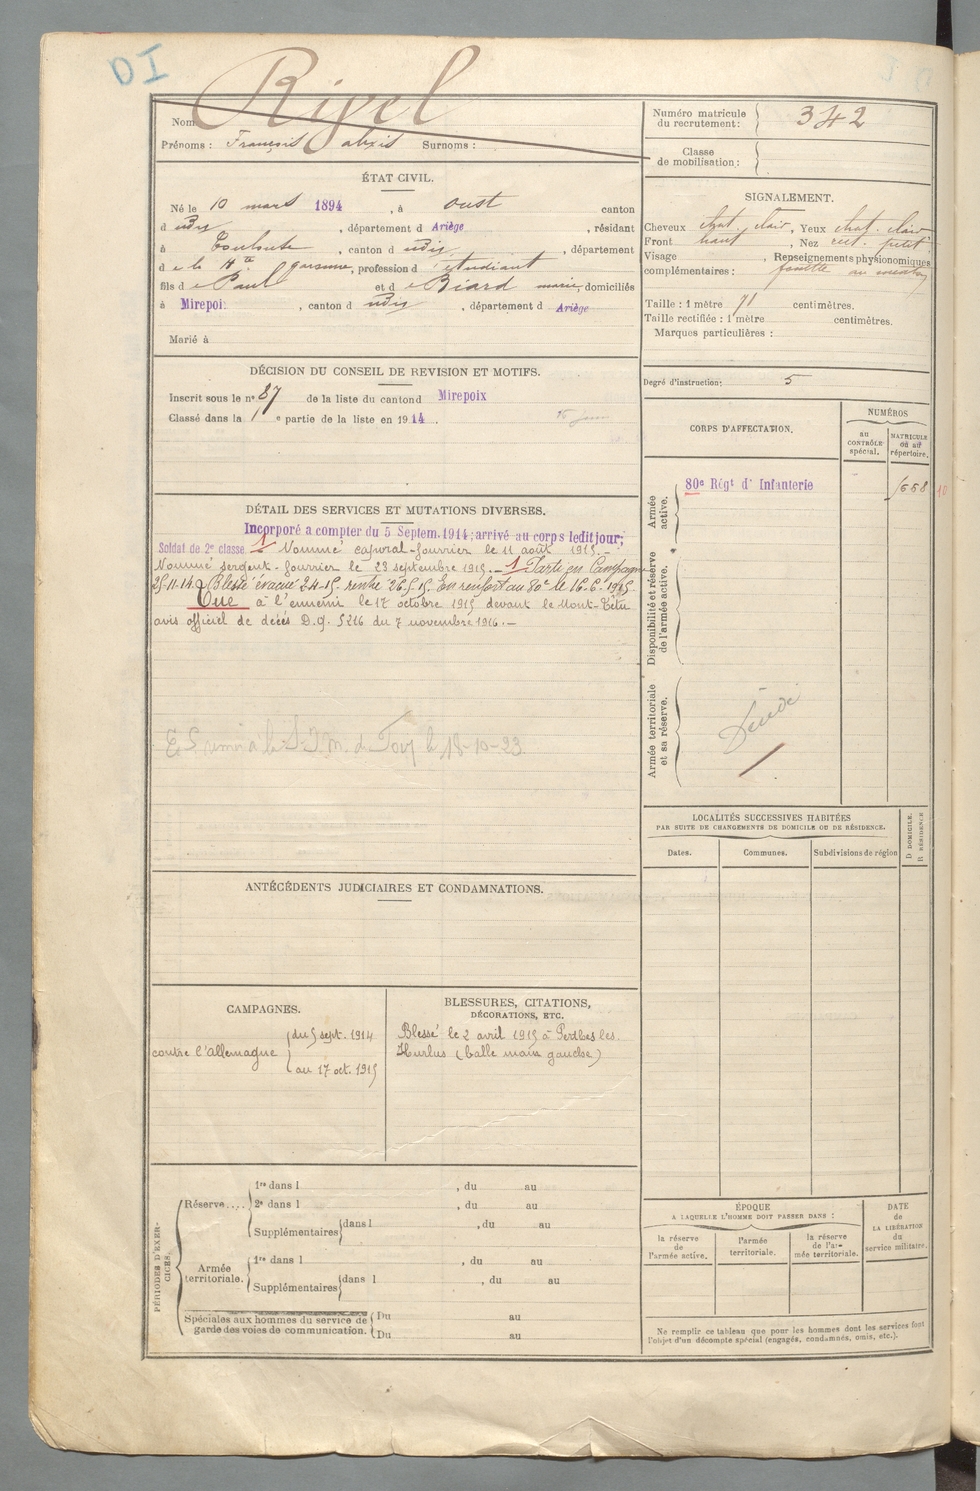 DI
Rigel
Nom
Prénoms : François alexis Surnoms :
Numéro matricule
du recrutement : 342
Classe
de mobilisation :
ÉTAT CIVIL.
Né le 10 mars 1894, à oust canton
d udis, département d Ariège, résidant
à Toulouse, canton d udis, département
d e la Hte garonne, profession d 'étudiant
fils d e Paul et d e Biard marie, domiciliés
à Mirepoix, canton d udis, département d Ariège
Marié à
SIGNALEMENT.
Cheveux chat. clair, Yeux chat. clair
Front haut, Nez rect. petit
Visage , Renseignements physionomiques
complémentaires : fossette au menton
Taille : 1 mètre 71 centimètres.
Taille rectifiée : 1 mètre centimètres.
Marques particulières :
Degré d'instruction : 5
DÉCISION DU CONSEIL DE REVISION ET MOTIFS.
Inscrit sous le n° 87 de la liste du canton d Mirepoix
Classé dans la 1 e partie de la liste en 1914.
CORPS D'AFFECTATION.
NUMÉROS
au
CONTRÔLE
spécial.
MATRICULE
ou au
répertoire.
Armée
active.
80e Régt d' Infanterie
Disponibilité et réserve
de l'armée active.
Armée territoriale
et sa réserve.
Décédé
DÉTAIL DES SERVICES ET MUTATIONS DIVERSES.
Incorporé a compter du 5 Septem. 1914; arrivé au corps ledit jour;
Soldat de 2e classe. Nommé caporal-fourrier le 11 août 1915.-
Nommé sergent-fourrier le 23 septembre 1915.- Parti en Campagne
25.11.14. Blessé évacué 2.4.15. rentré 26.5.15. En renfort au 80e le 16.6.1915.
Tué à l'ennemi le 17 octobre 1915 devant le Mont-Têtu
avis officiel de décès D.g. 5216 du 7 novembre 1916.-
le 18-10-23.
LOCALITÉS SUCCESSIVES HABITÉES
PAR SUITE DE CHANGEMENTS DE DOMICILE OU DE RÉSIDENCE.
Dates.
Communes.
Subdivisions de région
D DOMICILE.
R RÉSIDENCE
ANTÉCÉDENTS JUDICIAIRES ET CONDAMNATIONS.
CAMPAGNES.
contre l'Allemagne
du 5 sept. 1914
au 17 oct. 1915
BLESSURES, CITATIONS,
DÉCORATIONS, ETC.
Blessé le 2 avril 1915 à Perthes les
Hurlus (balle main gauche)
PÉRIODES D'EXER-
CICES.
Réserve....
1re dans l , du au
2e dans l , du au
Supplémentaires dans l , du au
Armée
territoriale.
1re dans l , du au
Supplémentaires dans l , du au
Spéciales aux hommes du service de
garde des voies de communication.
Du au
Du au
ÉPOQUE
A LAQUELLE L'HOMME DOIT PASSER DANS :
la réserve
de
l'armée active.
l'armée
territoriale.
la réserve
de l'ar-
mée territoriale.
DATE
de
LA LIBÉRATION
du
service militaire.
Ne remplir ce tableau que pour les hommes dont les services font
l'objet d'un décompte spécial (engagés, condamnés, omis, etc.).